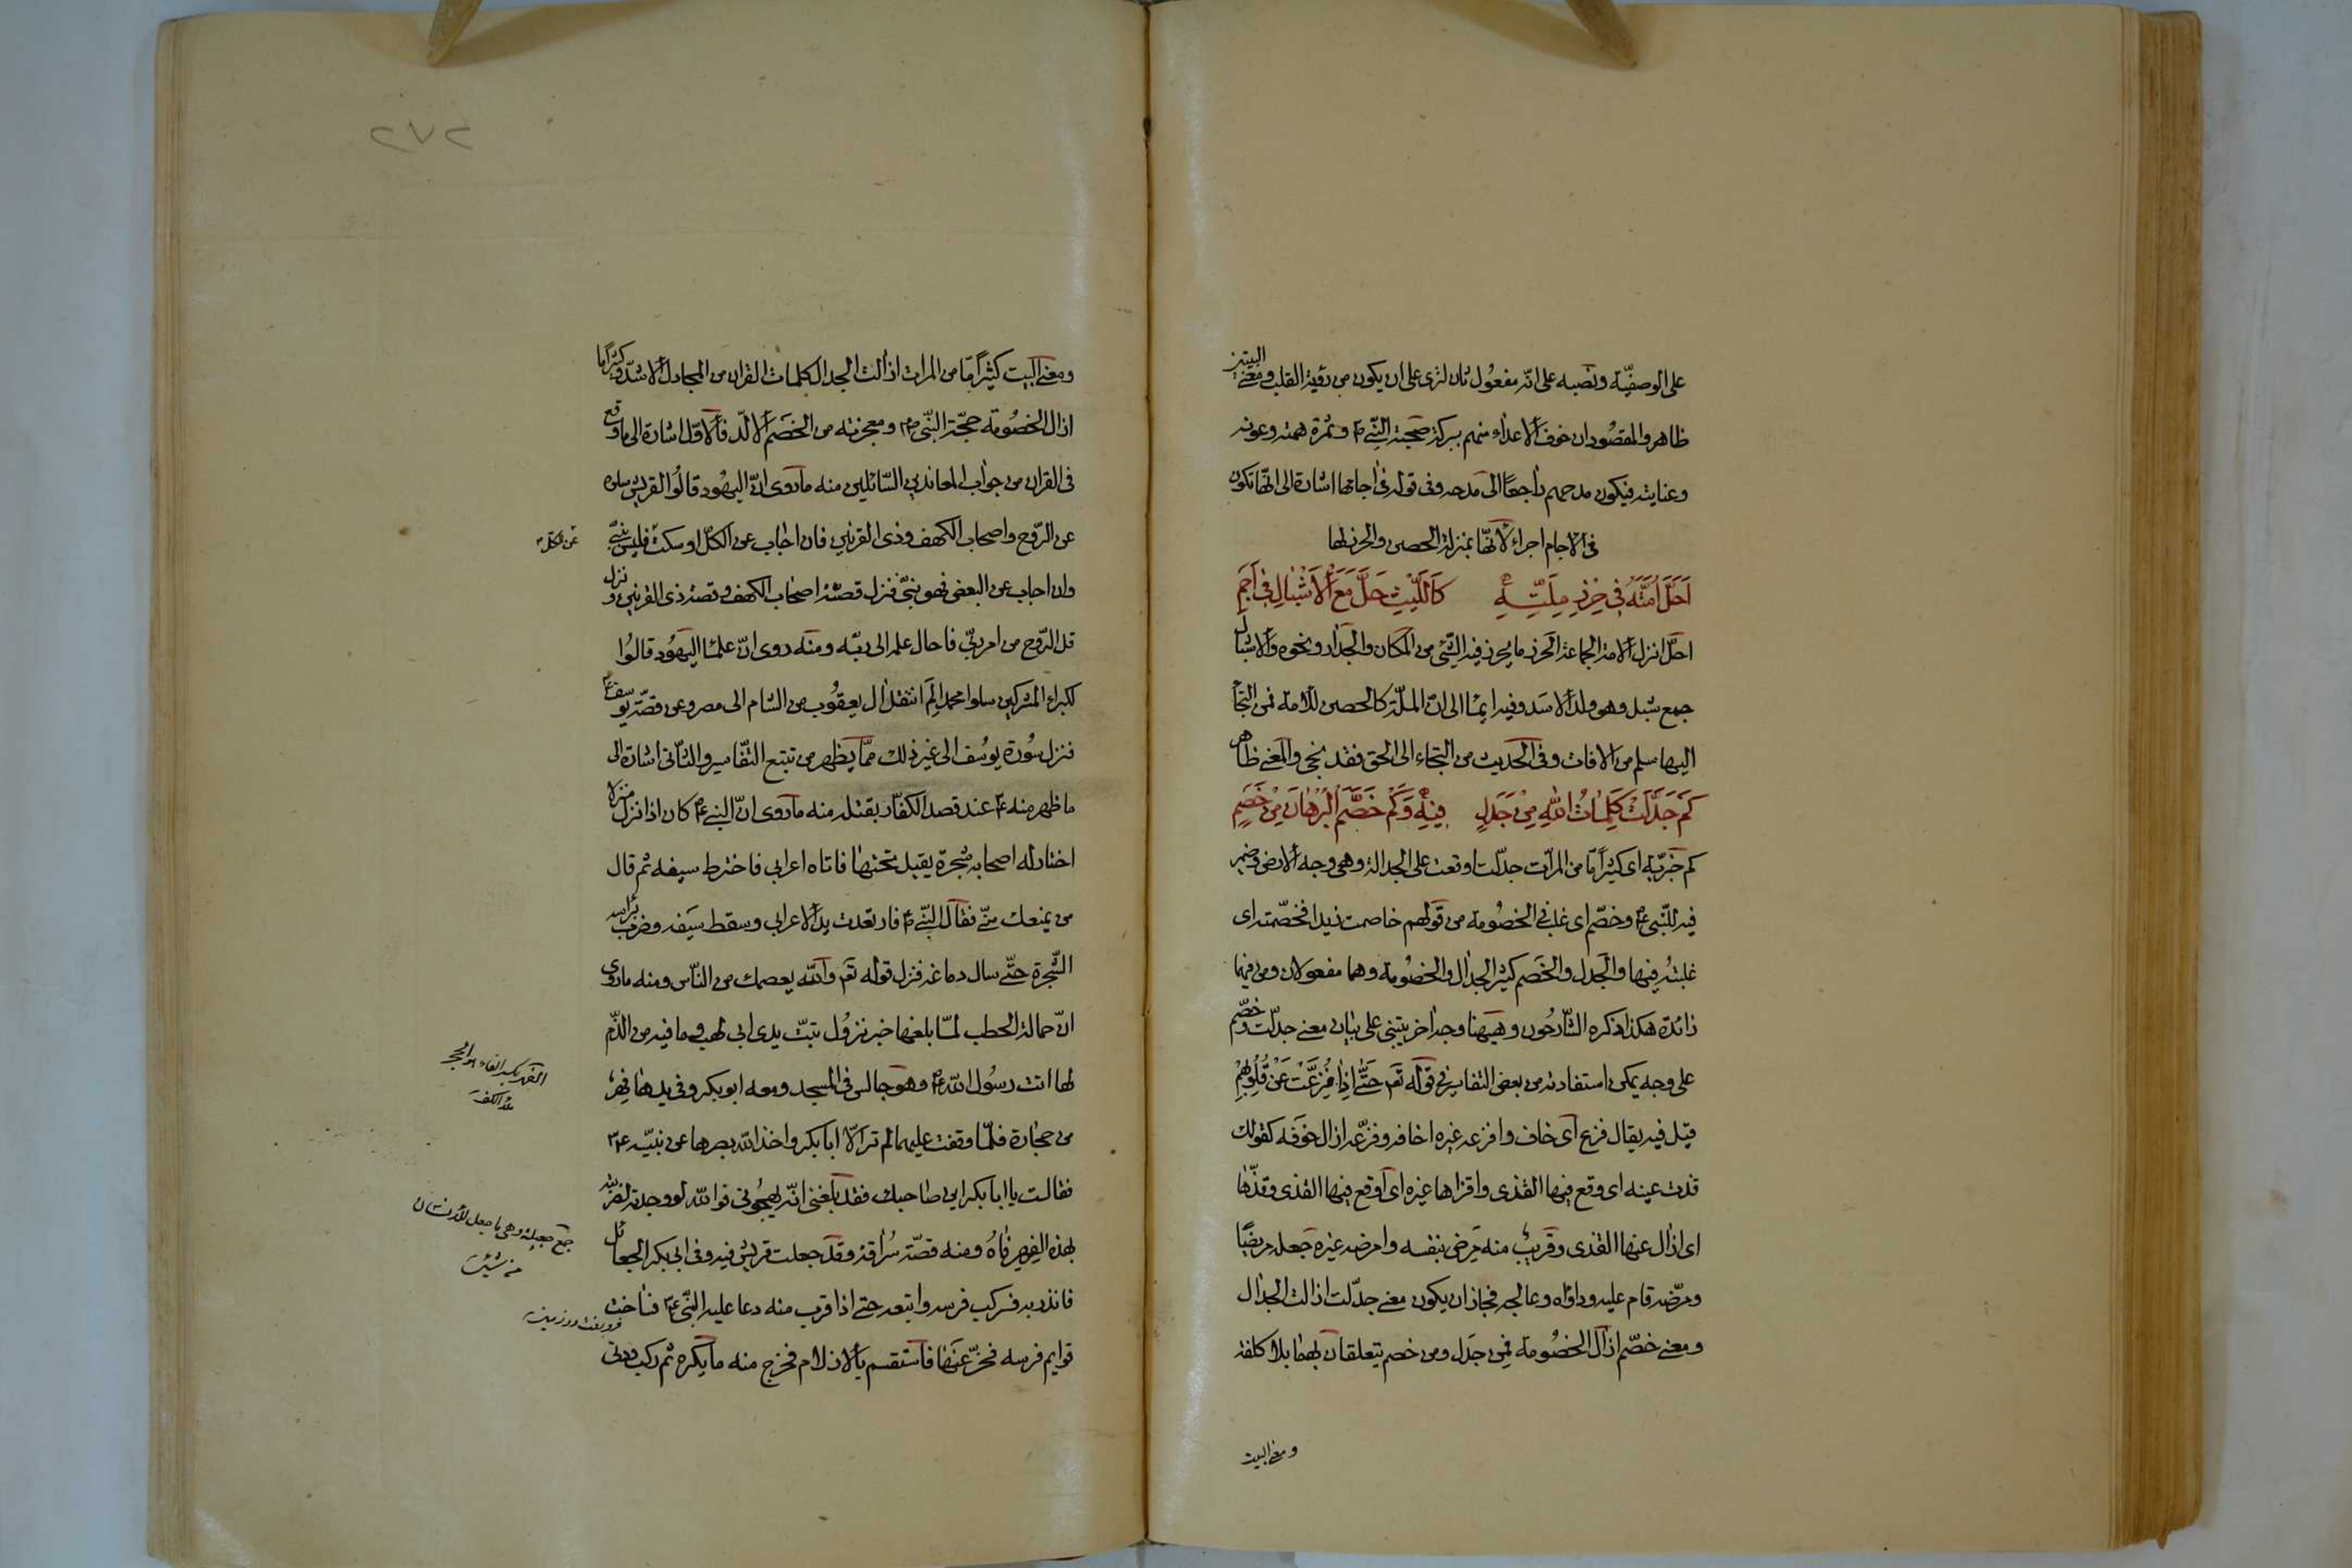 على الوصفيّة ونصبه على انّه مفعول ثان لترى على ان يكون من رؤية القلب ومعنى البيتين
ظاهر والمقصود ان خوف الاعداء منهم ببركة صحبة النّبى ۴ وثمرة همته وعونه
وعنايته فيكون مدحهم راجعًا الى مدحه وفى قوله فى اجامها اشارة الى انّها تكون
فى الاجام اجراء لانّها بمنزلة الحصن والحرز لها
اَحَلَّ اُمَّتَهُ فِى حِرْزِ مِلَّتِهِ كَاللَّيْثِ حَلَّ مَعَ الْاَشْبَالِ فِى اَجَمِ
احلّ انزل الامة الجماعة الحرز ما يحرز فيه الشئ من المكان والجدار ونحوه والاشبال
جمع شبل وهو ولد الاسد وفيه ايماء الى انّ الملّة كالحصن للامة فمن التجأ
اليها سلم من الافات وفى الحديث من التجاء الى الحق فقد نجى والمعنى ظاهر
كَمْ جَدَّلَتْ كَلِمَاتُ اللهِ مِنْ جَدَلِ فِيهِ وَكَمْ خَصَّمَ الْبُرْهَانُ مِنْ خَصِمِ
كم خبريّة اى كثيرًا مّا من المرّات جدّلت اوقعت على الجدالة وهى وجه الارض وضمير
فيه للنّبى ۴ وخصّم اى غلب فى الخصومة من قولهم خاصمت زيدا فخصمته اى
غلبته فيها والجدل والخصم كثير الجدال والخصومة وهما مفعولان ومن فيهما
زائدة هكذا ذكره الشّارحون وهيهنا وجه اخر يبتنى على بيان معنى جدّلت وخصّم
على وجه يمكن استفادته من بعض التفاسير فى قوله تع حَتَّى اِذَا فُزِّعَتْ عَنْ قُلُوبِهِمْ
قيل فيه يقال فزع اى خاف وافزعه غيره اخافه وفزّعه ازال خوفه كقولك
قذت عينه اى وقع فيها القذى واقذاها غيره اى اوقع فيها القذى وقذّها
اى ازال عنها القذى وقريب منه مرض بنفسه وامرضه غيره جعله مريضًا
ومرّضه قام عليه وداواه وعالجه فجاز ان يكون معنى جدّلت ازالت الجدال
ومعنى خصّم ازال الخصومة فمن جدل ومن خصم يتعلقان بهما بلا كلفة
ومعنى البيت
٢٧٢
ومعنى البيت كثيرًا مّا من المرات ازالت الجدال كلمات القران من المجادل الاشدّ وكثيرًا ما
ازال الخصومة حجّة النّبى ۴ ومعجزته من الخصم الالدّ فالاوّل اشارة الى ما وقع
فى القران من جواب المعاندين السّائلين منه ما روى انّ اليهود قالوا لقريش سلوه
عن الرّوح واصحاب الكهف وذى القرنين فان اجاب عن الكلّ او سكت فليس بنبىّ
عن الكل
وان اجاب عن البعض فهو نبىّ فنزل قصّة اصحاب الكهف وقصة ذى القرنين ونزل
قل الرّوح من امر ربّى فاحال علمه الى ربّه ومنه روى انّ علماء اليهود قالوا
لكبراء المشركين سلوا محمدا لم انتقل ال يعقوب من الشام الى مصر وعن قصّة يوسف ۴
فنزل سورة يوسف الى غير ذلك ممّا يظهر من تتبع التّفاسير والثّانى اشارة الى
ما ظهر منه ۴ عند قصد الكفّار بقتله منه ما روى انّ النبى ۴ كان اذا نزل منزلا
اختار له اصحابه شجرة يقيل تحتها فاتاه اعرابى فاخترط سيفه ثم قال
من يمنعك منّى فقال النّبى ۴ فارتعدت يد الاعرابى وسقط سيفه وضرب براسه
الشّجرة حتّى سال دماغه فنزل قوله تع والله يعصمك من النّاس ومنه ما روى
انّ حمالة الحطب لمّا بلغها خبر نزول تبّت يدى ابى لهب وما فيه من الذّم
لها اتت رسول الله ۴ وهو جالس فى المسجد ومعه ابو بكر وفى يدها فهر
الفهر بكسر الفاء هو الحجر
ملأ الكف
من حجارة فلمّا وقفت عليهما لم تر الّا ابا بكر واخذ الله بصرها عن نبيّه ۴
فقالت يا ابا بكر اين صاحبك فقد بلغنى انّه يهجونى فوالله لو وجدته لضربته
بهذه الفهر فاهُ ومنه قصّة سراقة وقد جعلت قريش فيه وفى ابى بكر الجعائل
جمع جعيلة وهى ما جعل للانسان
من شئ
فانذر به فركب فرسه واتبعه حتى اذا قرب منه دعا عليه النّبى ۴ فساخت
قوايم فرسه فخرّ عنها فاستقسم بالازلام فخرج منه ما يكره ثم ركب ودنى